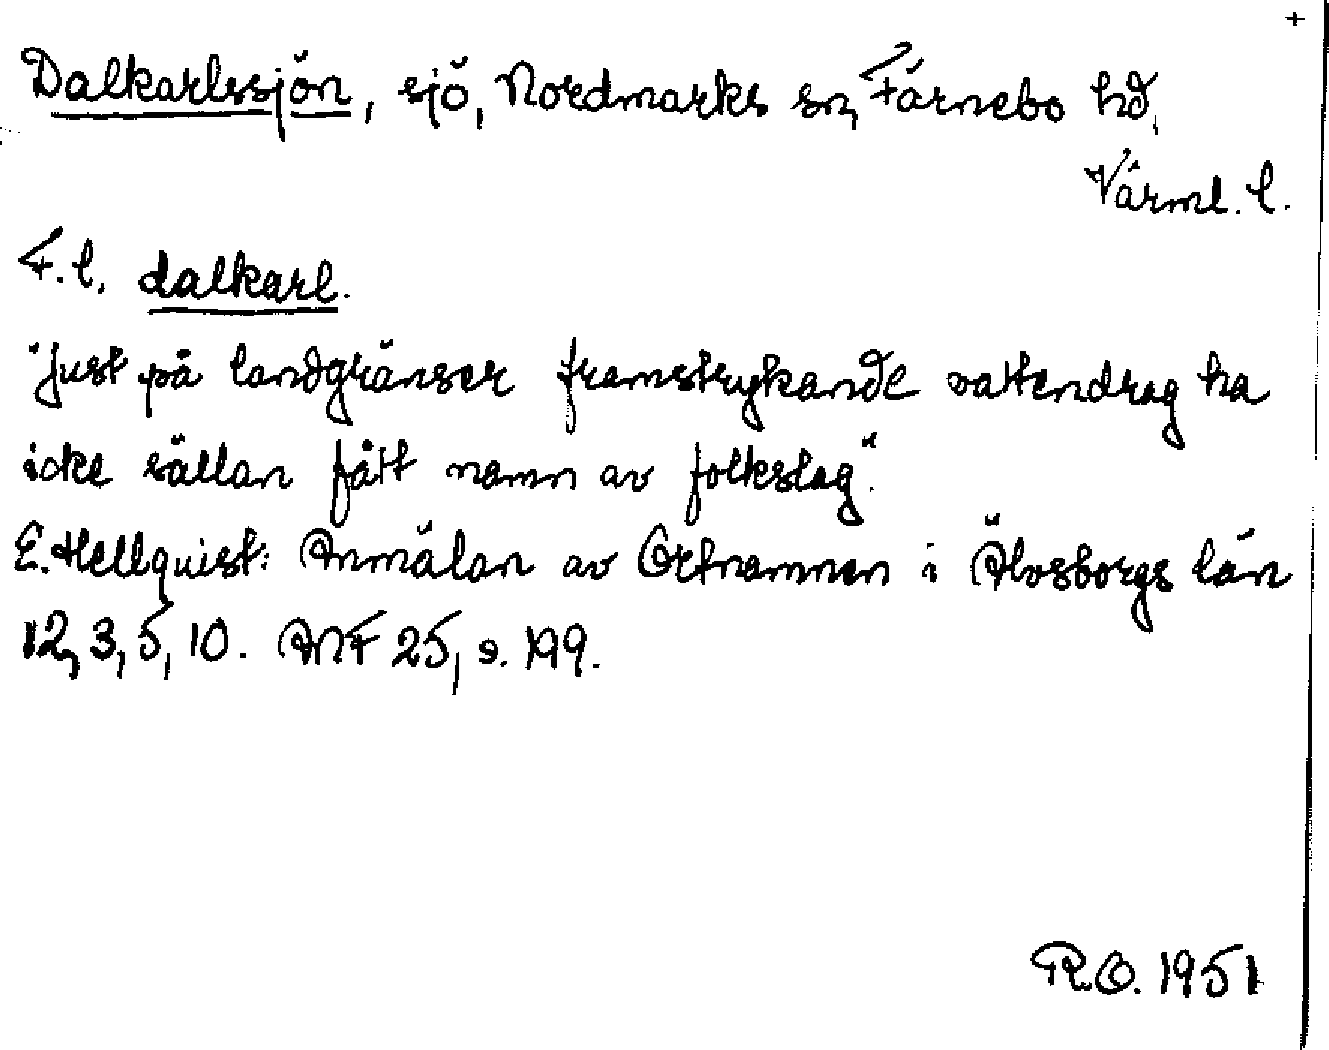 +
Dalkarlssjön, sjö, Nordmarks sn, Färnebo hd,
Värml. l.
F.l. dalkarl.
"Just på landgränser framstrykande vattendrag ha
icke sällan fått namn av folkslag".
E. Hellquist: Anmälan av Ortnamnen i Älvsborgs län
12, 3, 5, 10. ANF 25, s. 199.
R.O. 1951